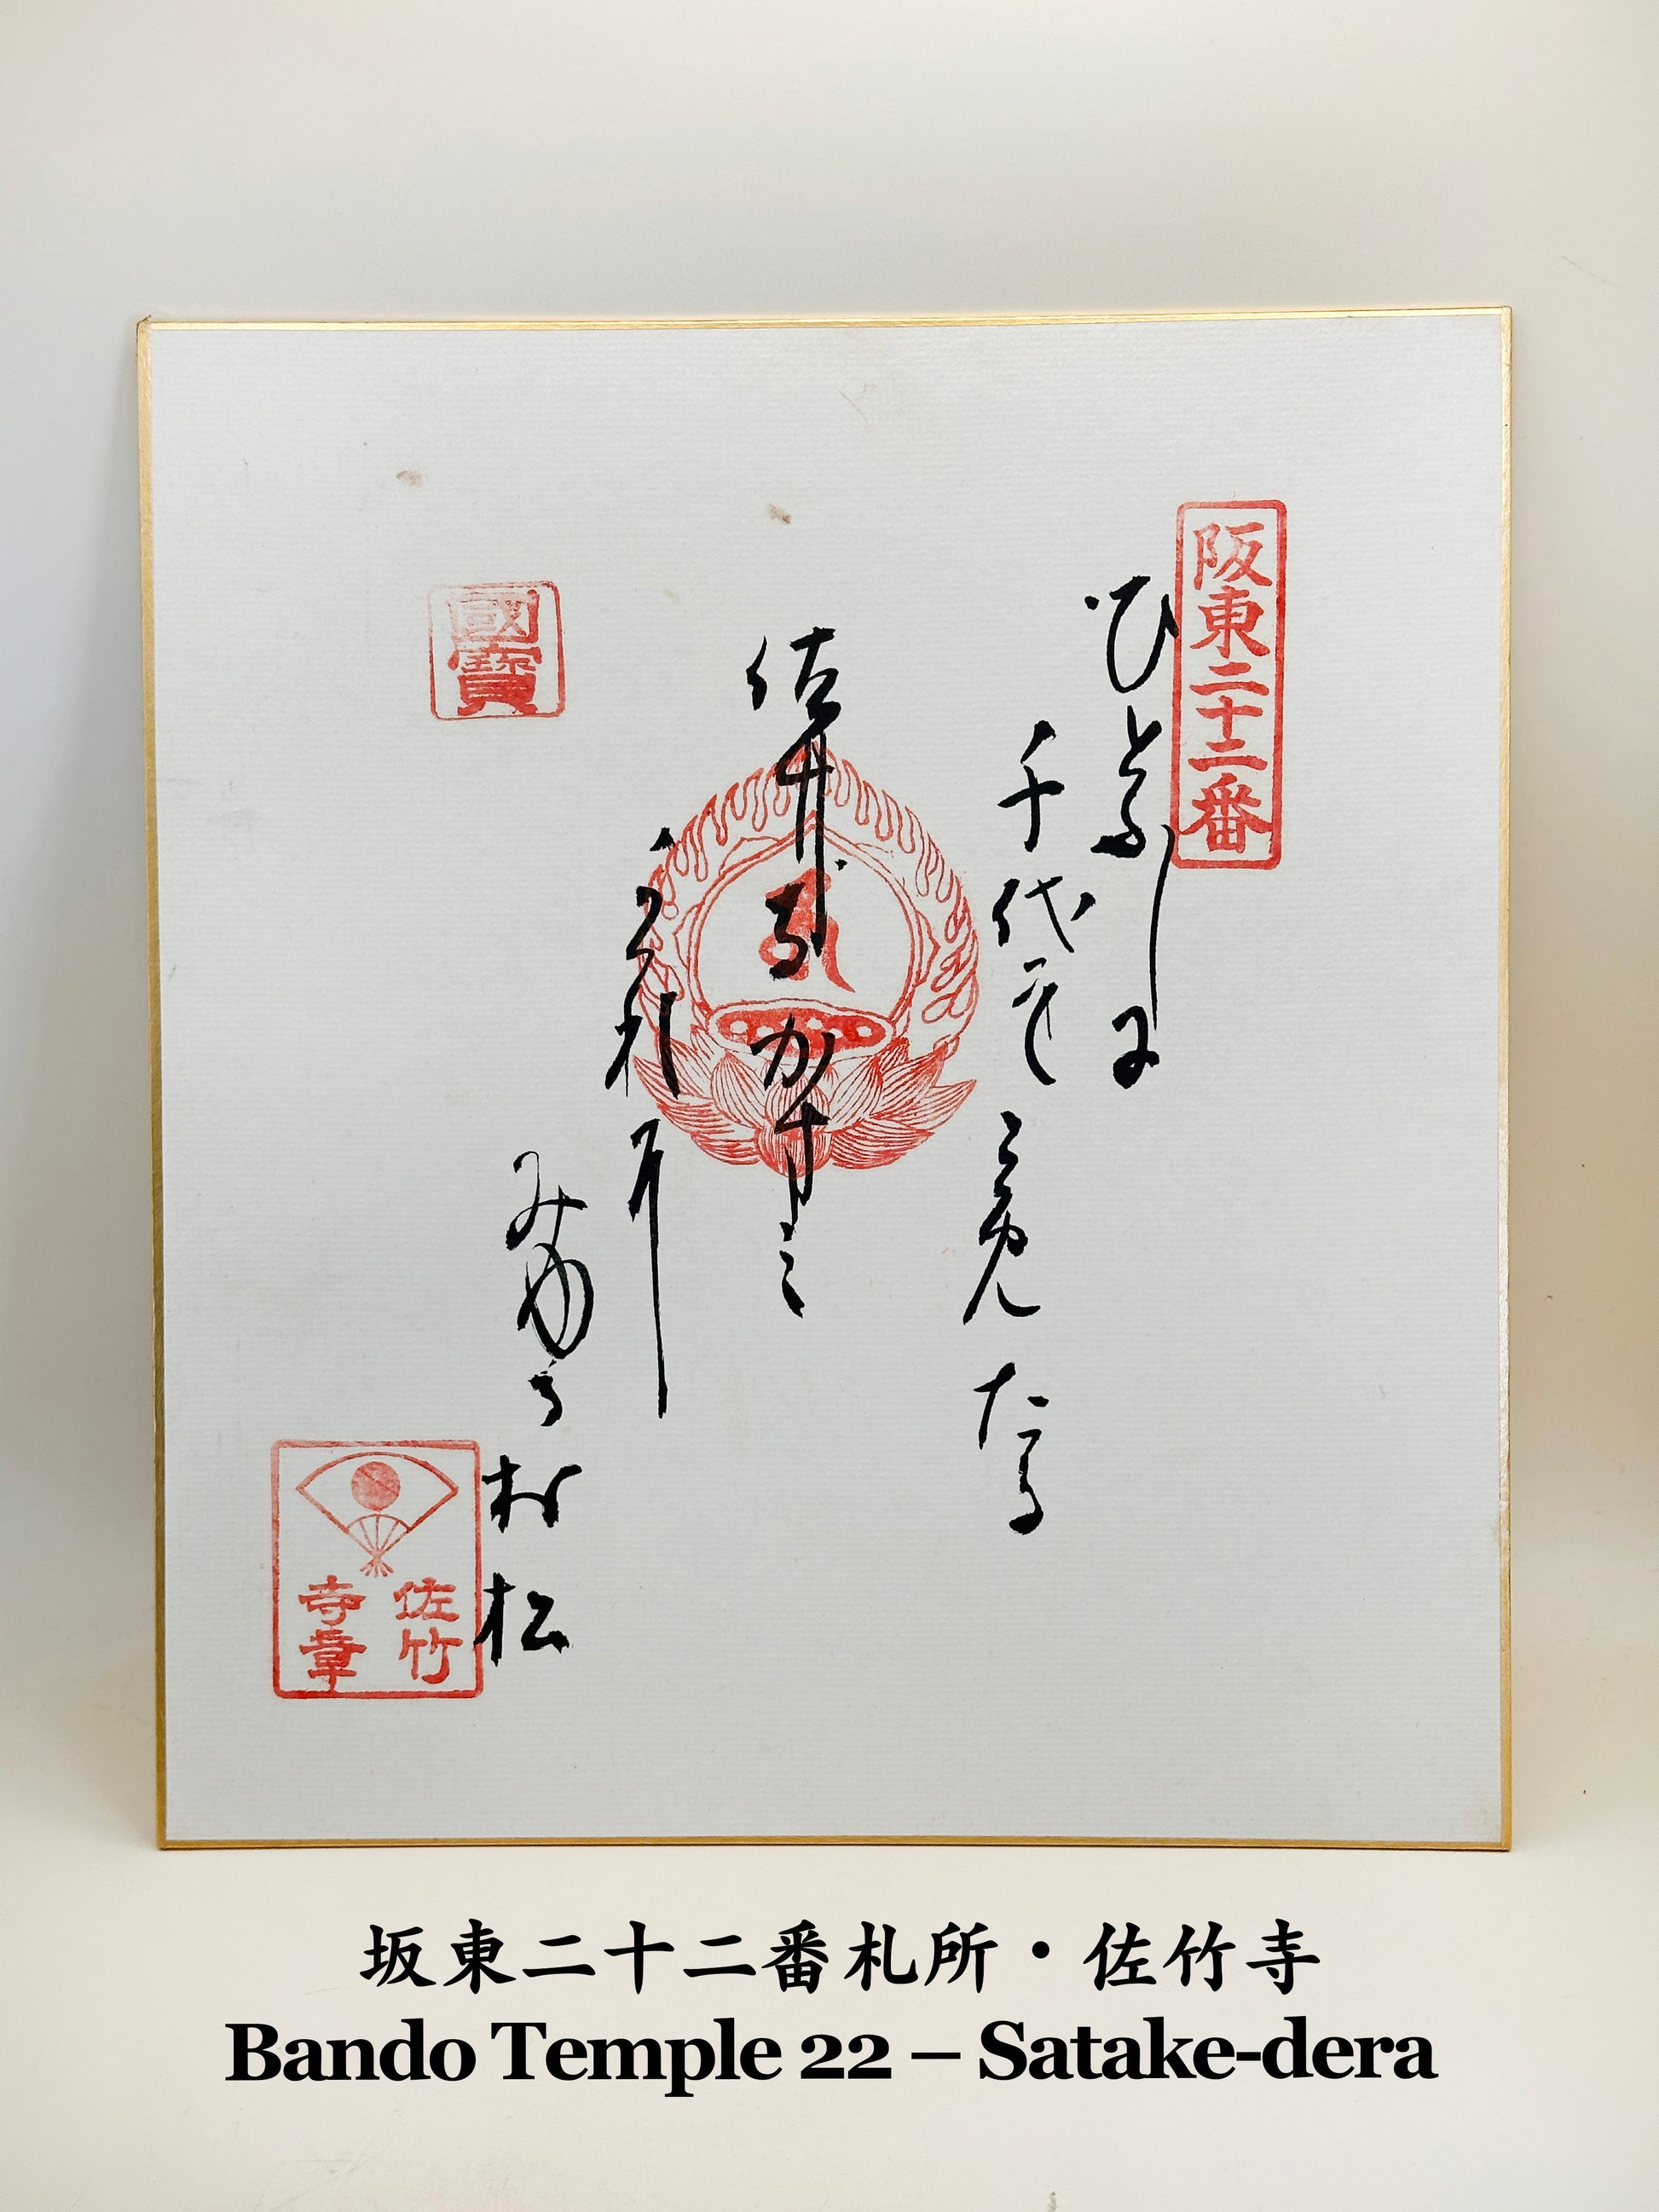 阪東二十二番
ひとふしに
千代をこめたる
佐竹寺かすミ
がくれに
みゆる村松
國寶
佐竹
寺章
坂東二十二番札所・佐竹寺
Bando Temple 22 – Satake-dera